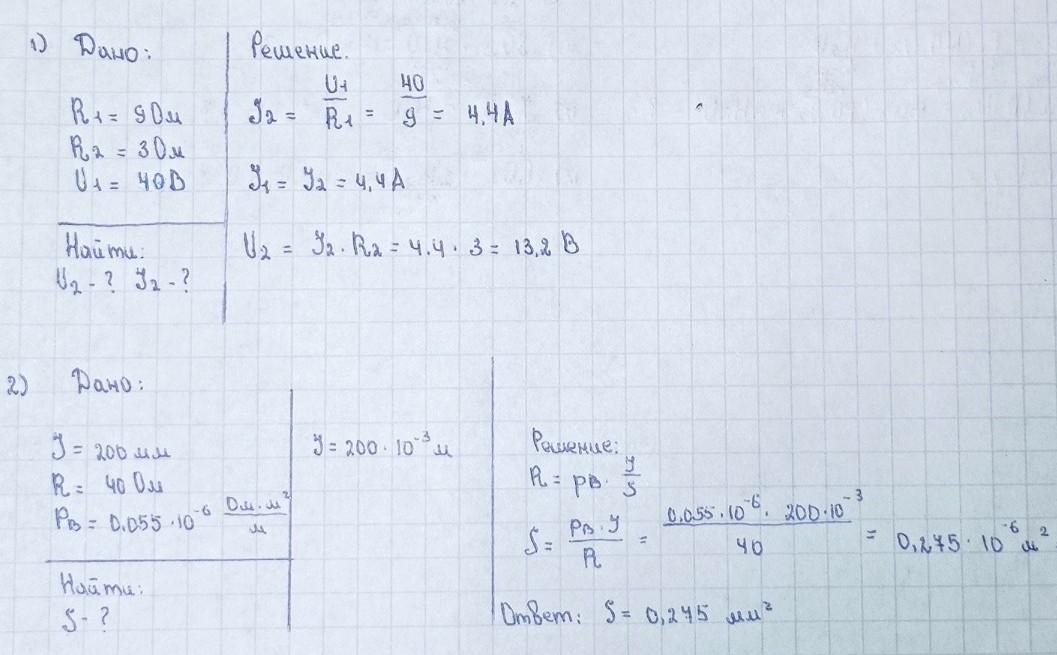 1) Дано:
R₁ = 9 Ом
R₂ = 3 Ом
U₁ = 40 В
Найти:
U₂ - ? J₂ - ?
Решение.
J₂ = U₁/R₁ = 40/9 = 4,4 А
J₁ = J₂ = 4,4 А
U₂ = J₂ · R₂ = 4.4 · 3 = 13,2 В
2) Дано:
J = 200 мм
R = 40 Ом
Pв = 0.055 · 10⁻⁶ Ом·м²/м
Найти:
S - ?
J = 200 · 10⁻³ м
Решение:
R = pв · J/S
S = pв · J/R = 0.055 · 10⁻⁶ · 200·10⁻³/40 = 0,275 · 10⁻⁶ м²
Ответ: S = 0,275 мм²